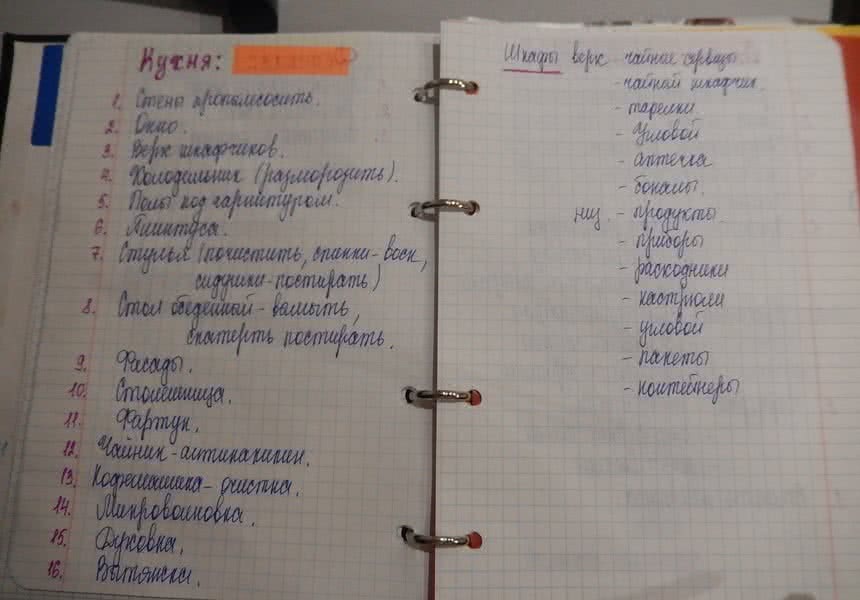 Кухня:
1. Стены пропылесосить.
2. Окно.
3. Верх шкафчиков.
4. Холодильник (разморозить).
5. Полы под гарнитуром.
6. Плинтуса.
7. Стулья (почистить, спинки-воск,
сидушки-постирать)
8. Стол обеденный - вымыть,
скатерть постирать.
9. Фасады.
10. Столешница.
11. Фартук.
12. Чайник-антинакипин.
13. Кофемашина-очистка.
14. Микроволновка.
15. Духовка.
16. Вытяжка.
Шкафы верх - чайные сервизы
- чайный шкафчик.
- тарелки
- Угловой
- аптечка
- бокалы.
низ. - продукты
- приборы
- расходники
- кастрюли
- угловой
- пакеты
- контейнеры